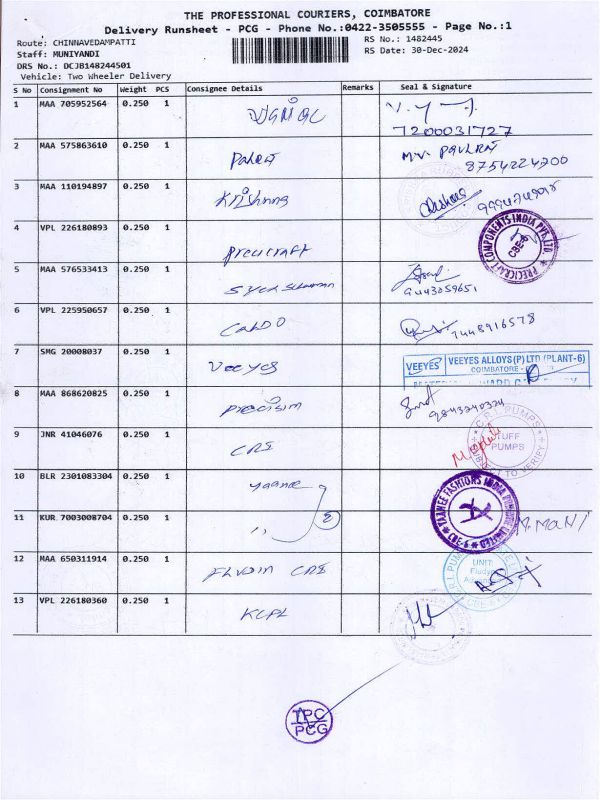 THE PROFESSIONAL COURIERS, COIMBATORE
Delivery Runsheet - PCG - Phone No.:0422-3505555 - Page No.:1
Route: CHINNAVEDAMPATTI RS No.: 1482445
Staff: MUNIYANDI RS Date: 30-Dec-2024
DRS No.: DCJB148244501
Vehicle: Two Wheeler Delivery
S No Consignment No Weight PCS Consignee Details Remarks Seal & Signature
1 MAA 705952564 0.250 1
7200031727
2 MAA 575863610 0.250 1
8754224200
3 MAA 110194897 0.250 1 Krishna
4 VPL 226180893 0.250 1 Precicraft PRECICRAFT COMPONENTS INDIA PVT. LTD. CBE-6
5 MAA 576533413 0.250 1
9443059651
6 VPL 225950657 0.250 1 7448916578
7 SMG 20008037 0.250 1 Veeyes VEEYES VEEYES ALLOYS (P) LTD (PLANT-6)
COIMBATORE
8 MAA 868620825 0.250 1 Precision 9843240324
9 JNR 41046076 0.250 1 CRI C.R.I. PUMPS
TUFF
PUMPS
10 BLR 2301083304 0.250 1 Yaanee YAANEE FASHIONS INDIA PRIVATE LIMITED
11 KUR 7003008704 0.250 1 ,, 2 M. MANI
12 MAA 650311914 0.250 1 Fludyn CRI UNIT:
Fludyn
13 VPL 226180360 0.250 1 KCPL
TPC
PCG